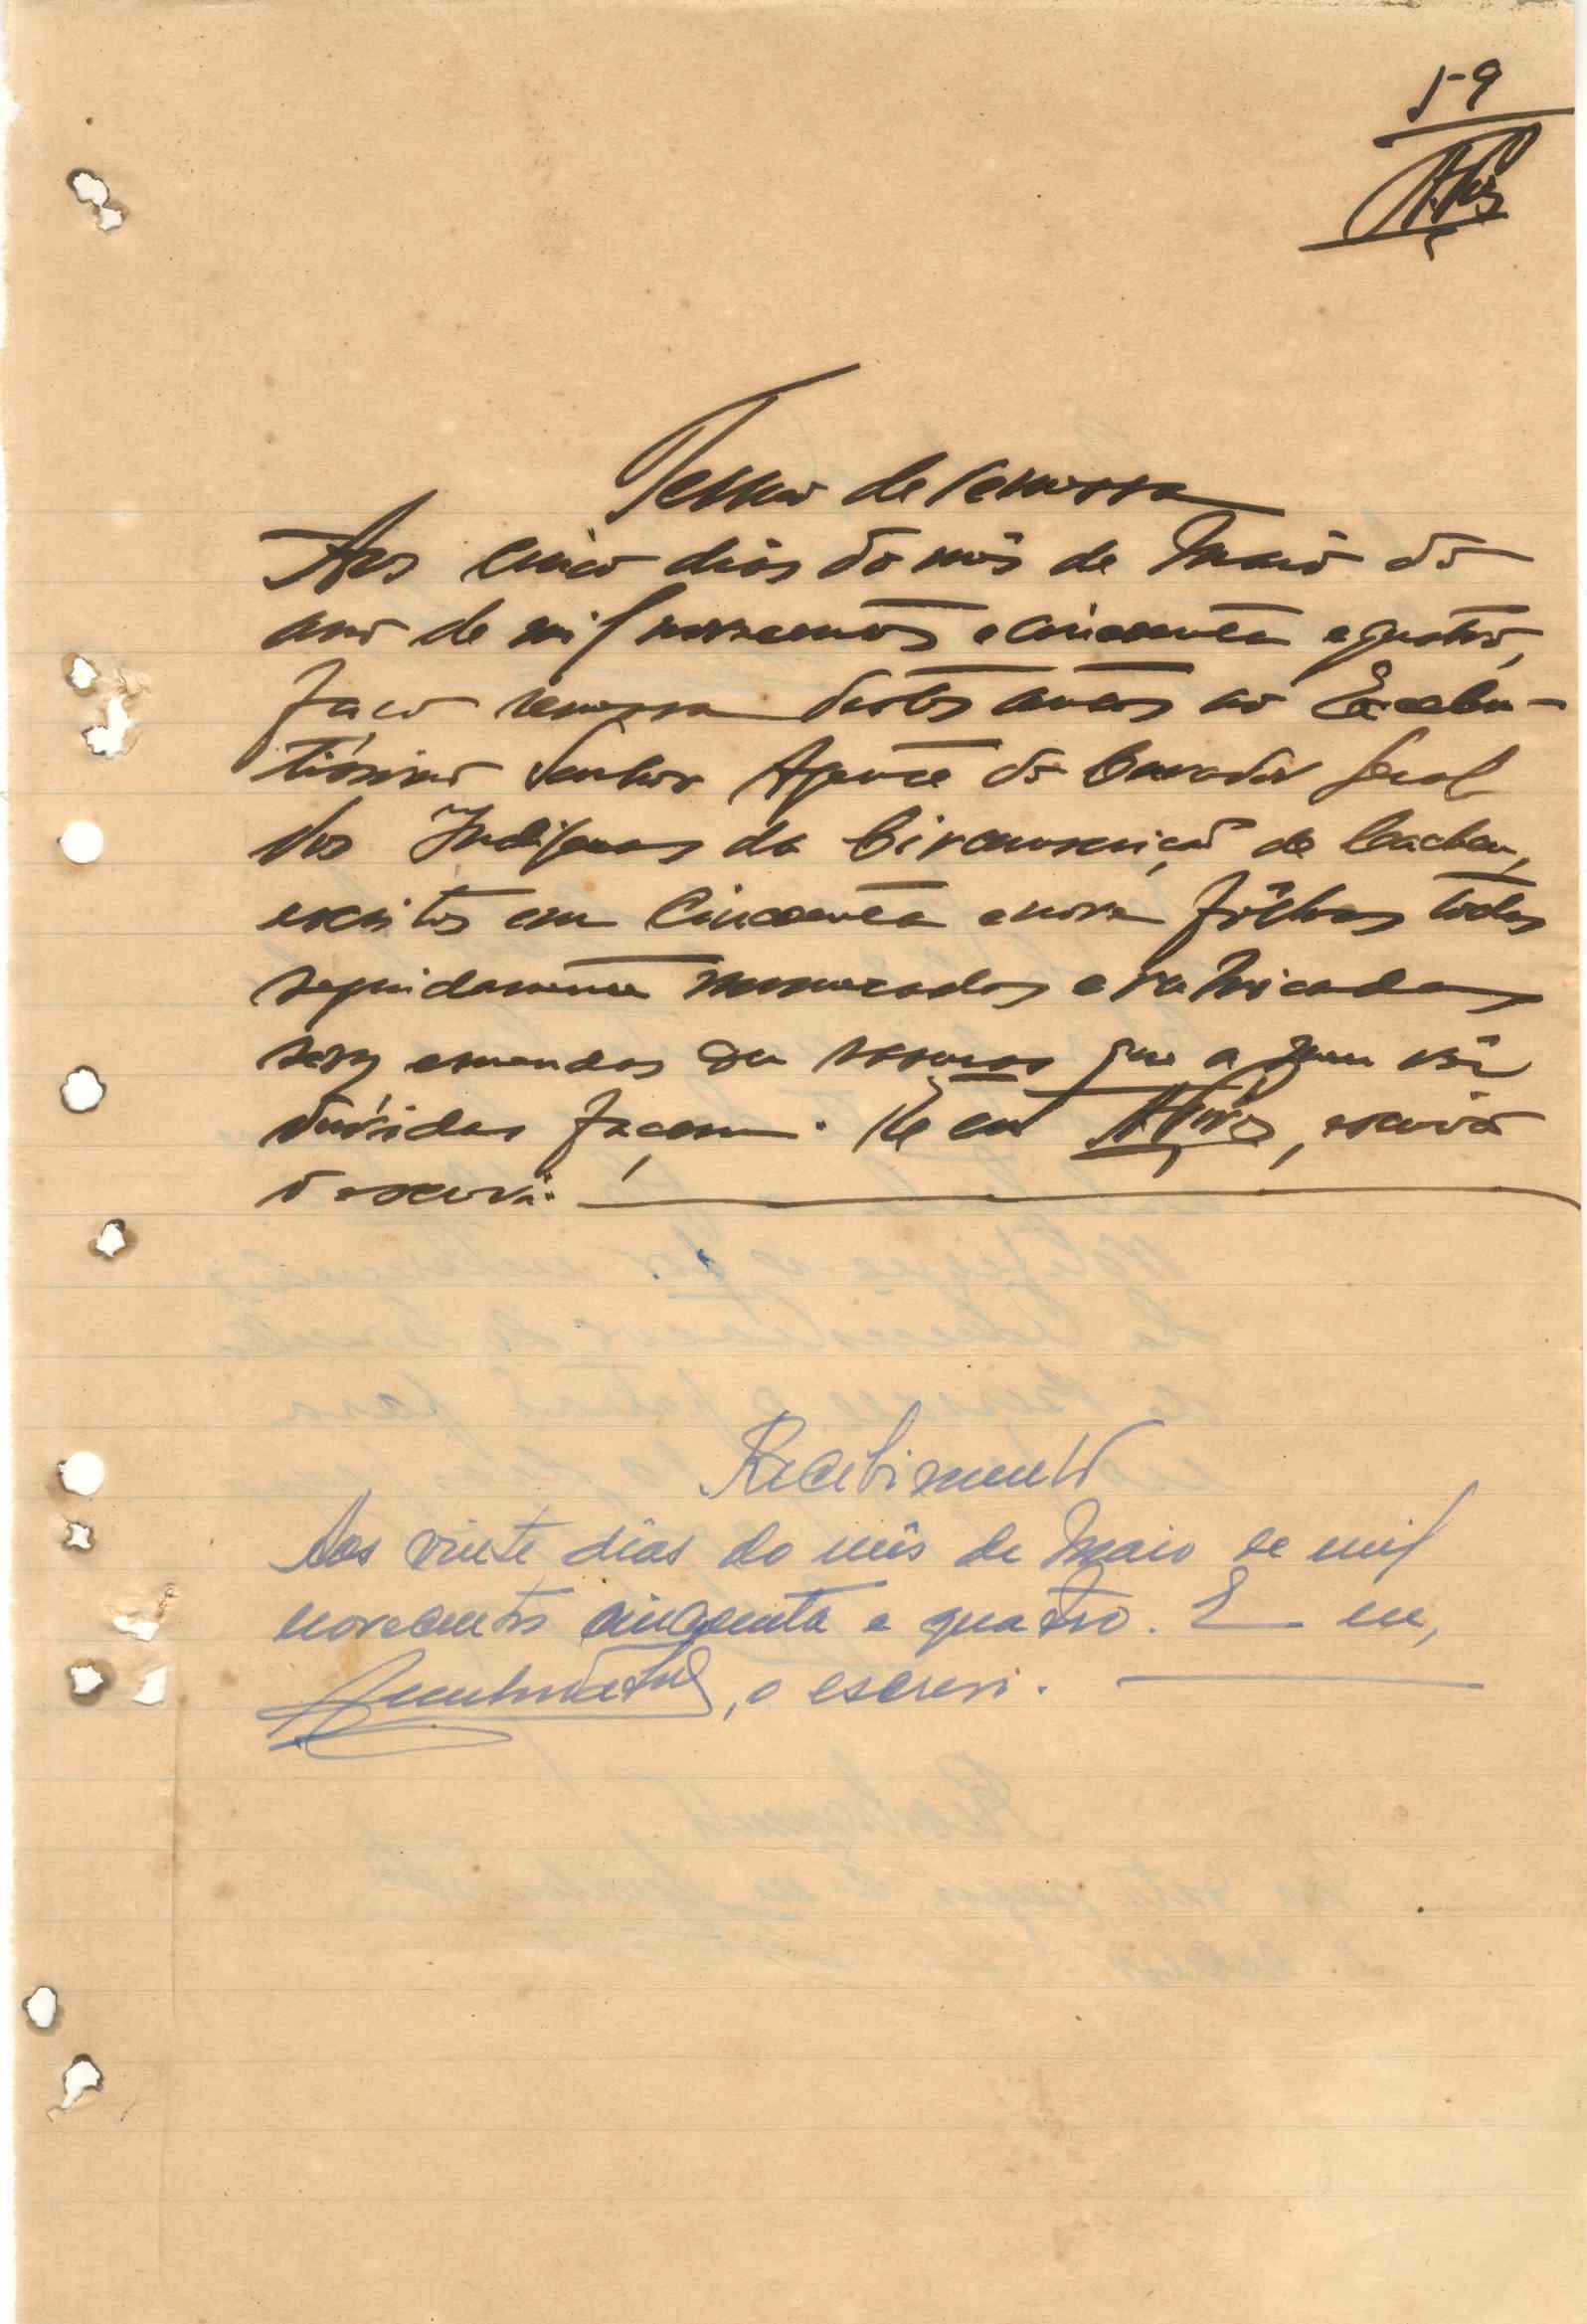 59
Termo de remessa
Aos cinco dias do mês de Maio do
ano de mil novecentos e cincoenta e quatro,
faço remessa destes autos ao Excelen-
tissimo Senhor Agente do Curador Geral
dos Indígenas da Circunscrição de Cacheu,
escritos em cincoenta e nove fôlhas todas
seguidamente numeradas e rubricadas
sem emendas ou rasuras que a quem
dúvidas façam. E eu, escrivão
o escrevi.
Recebimento
Aos vinte dias do mês de Maio de mil
novecentos cincoenta e quatro. E eu,
, o escrevi.